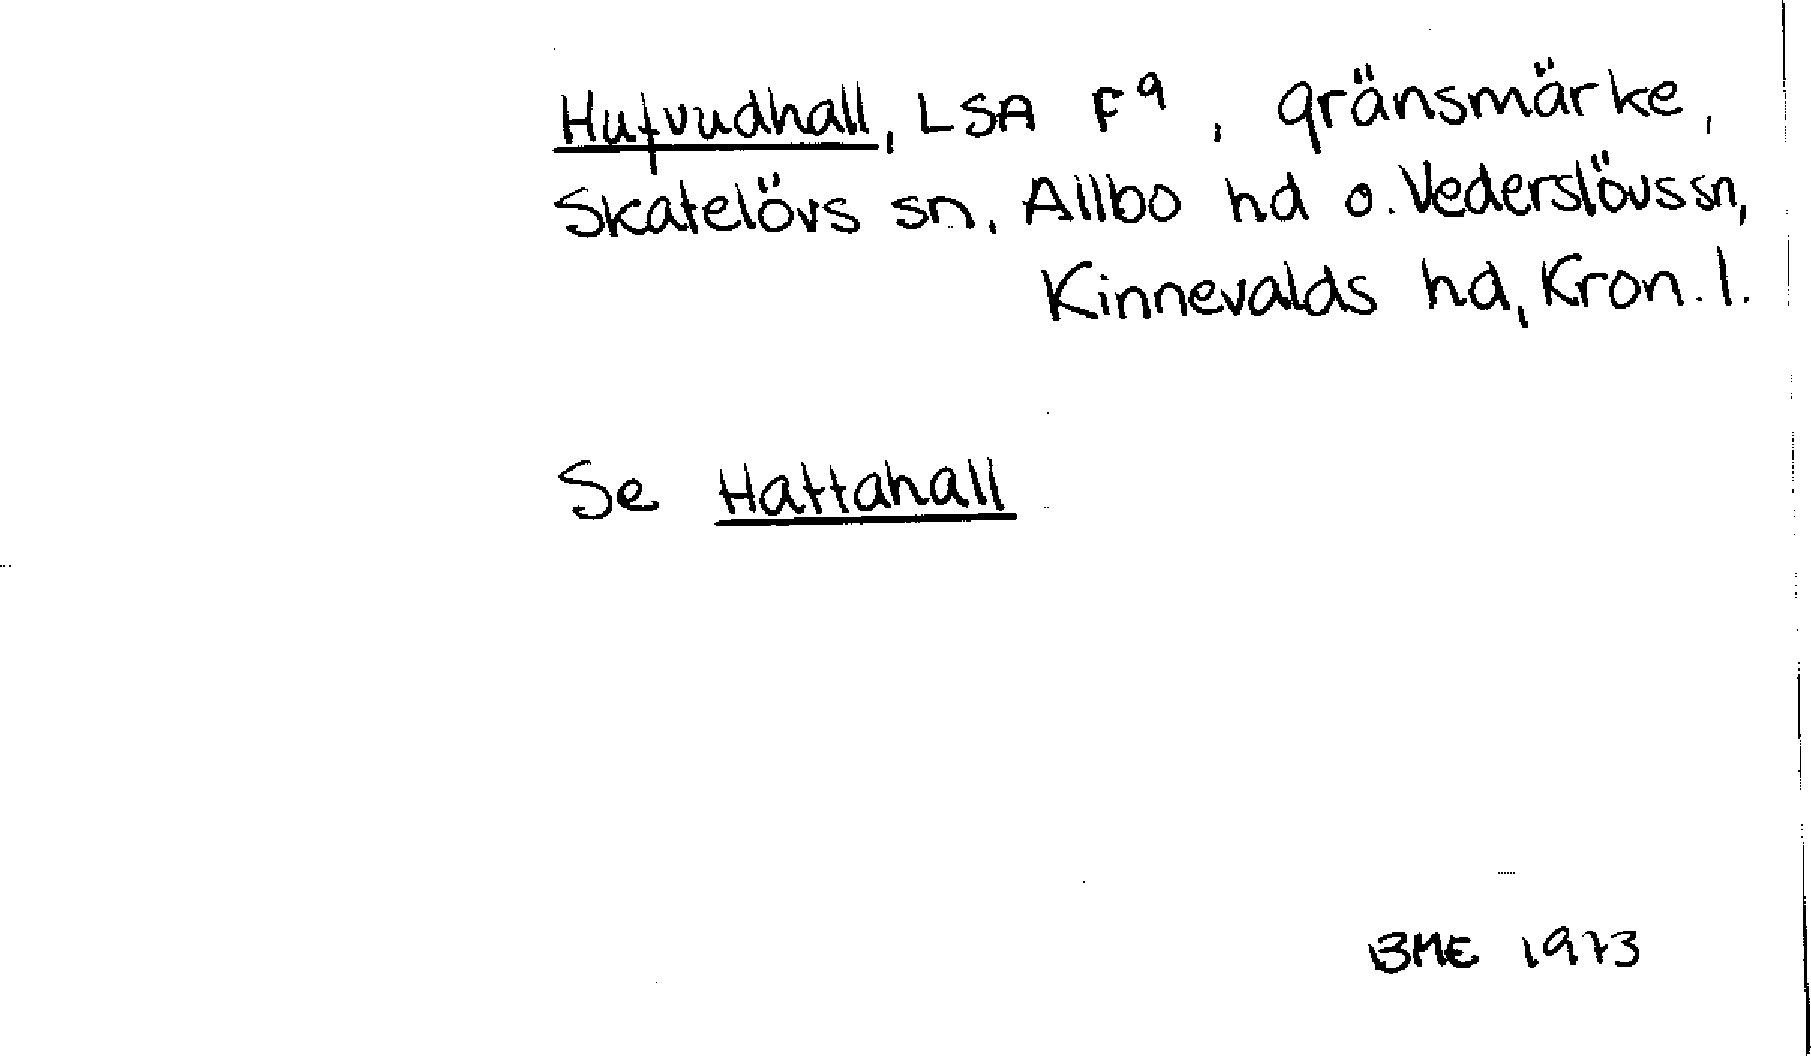 Hufvudhall, LSA F⁹, gränsmärke,
Skatelövs sn, Allbo hd o. Vederslövs sn,
Kinnevalds hd, Kron. l.
Se Hattahall
BME 1973